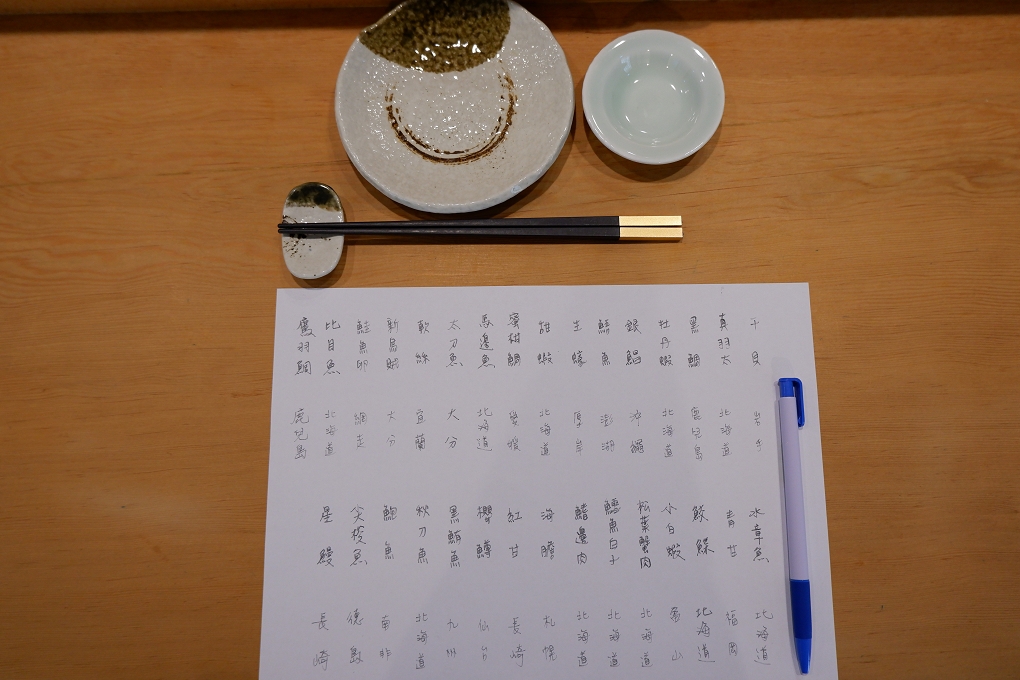 干貝 岩手
真羽太 北海道
黑鯛 鹿兒島
牡丹蝦 北海道
銀鯧 沖繩
鮮魚 澎湖
生蠔 厚岸
甜蝦 北海道
蜜柑鯛 愛媛
馬邊魚 北海道
太刀魚 大分
軟絲 宜蘭
新烏賊 大分
鮭魚卵 網走
比目魚 北海道
鷹羽鯛 鹿兒島
水章魚 北海道
青甘 福岡
鮫鰈 北海道
小白蝦 富山
松葉蟹肉 北海道
鱈魚白子 北海道
鰭邊肉 北海道
海膽 札幌
紅甘 長崎
櫻鱒 仙台
黑鮪魚 九州
秋刀魚 北海道
鮑魚 南非
尖梭魚 德島
星鰻 長崎